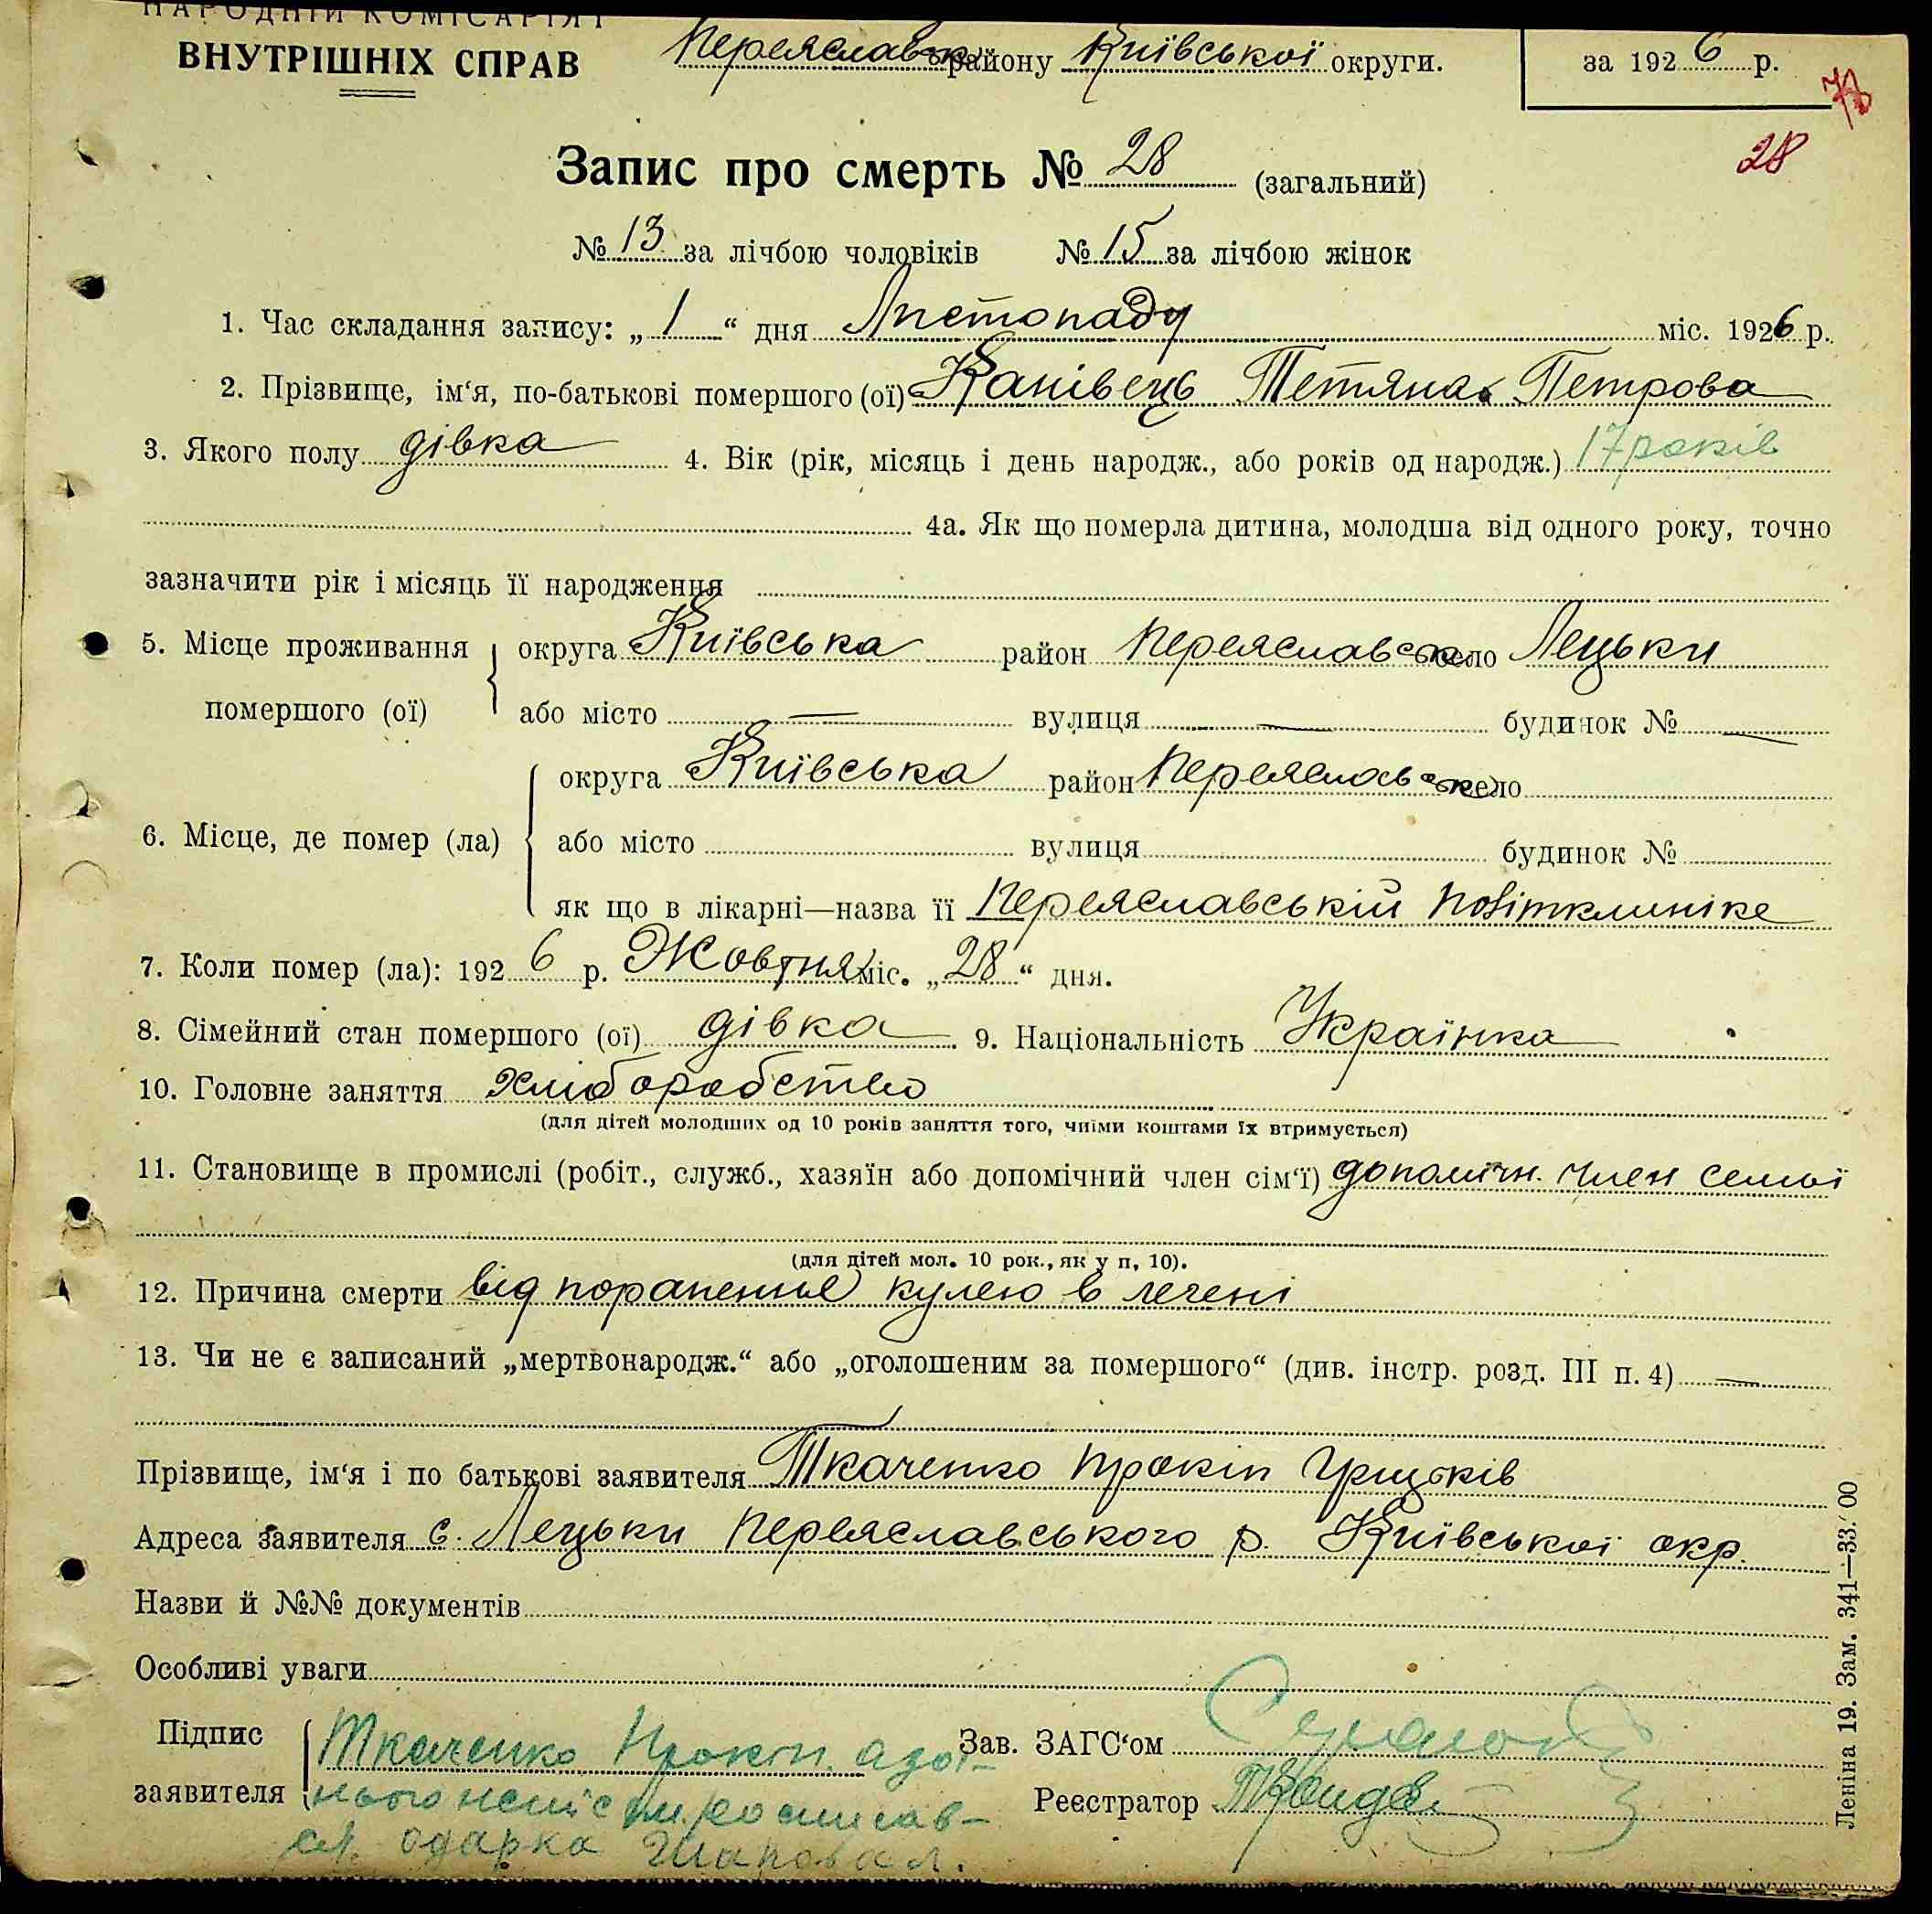 НАРОДНІЙ КОМІСАРІЯТ
ВНУТРІШНІХ СПРАВ Переяславськ району Київської округи. за 1926 р.
28
Запис про смерть № 28 (загальний)
№ 13 за лічбою чоловіків № 15 за лічбою жінок
1. Час складання запису: „1“ дня Листопаду міс. 1926 р.
2. Прізвище, ім‘я, по-батькові помершого (ої) Канівець Тетяна Петрова
3. Якого полу дівка 4. Вік (рік, місяць і день народж., або років од народж.) 17 років
4а. Як що померла дитина, молодша від одного року, точно
зазначити рік і місяць її народження
5. Місце проживання округа Київська район Переяславськ село Лецьки
помершого (ої) або місто — вулиця — будинок № —
округа Київська район Переяславськ село
6. Місце, де помер (ла) або місто вулиця будинок №
як що в лікарні—назва її Переяславській
7. Коли помер (ла): 1926 р. Жовтня міс. „28“ дня.
8. Сімейний стан помершого (ої) дівка 9. Національність Українка
10. Головне заняття Хліборобство
(для дітей молодших од 10 років заняття того, чиїми коштами їх втримується)
11. Становище в промислі (робіт., служб., хазяїн або допомічний член сім‘ї) допомічн. член семьї
(для дітей мол. 10 рок., як у п. 10).
12. Причина смерти від поранення кулею в печені
13. Чи не є записаний „мертвонародж.“ або „оголошеним за помершого“ (див. інстр. розд. III п. 4) —
Прізвище, ім‘я і по батькові заявителя Ткаченко Прокіп Грицьків
Адреса заявителя с. Лецьки Переяславського р. Київської окр.
Назви й №№ документів
Особливі уваги
Підпис Ткаченко Прокіп. а за Зав. ЗАГС‘ом
заявителя нього Реєстратор
ся. Одарка Шаповал.
Леніна 19. Зам. 341—33.000